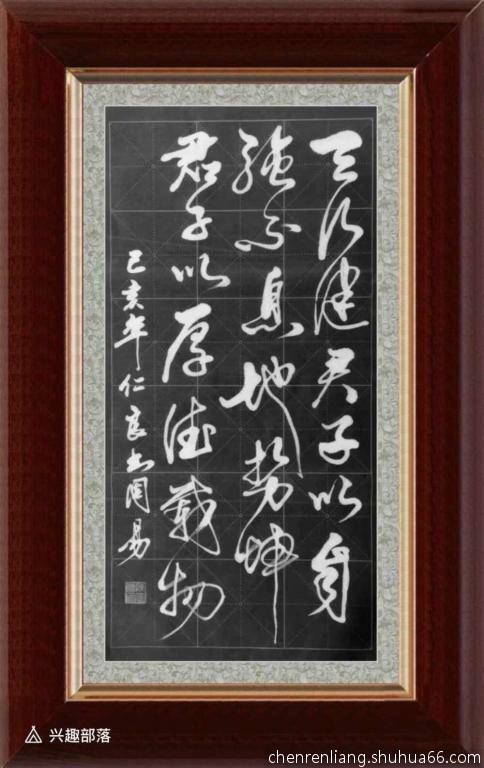 天行健君子以自
强不息地势坤
君子以厚德载物
己亥年仁良书周易
兴趣部落
chenrenliang.shuhua66.com